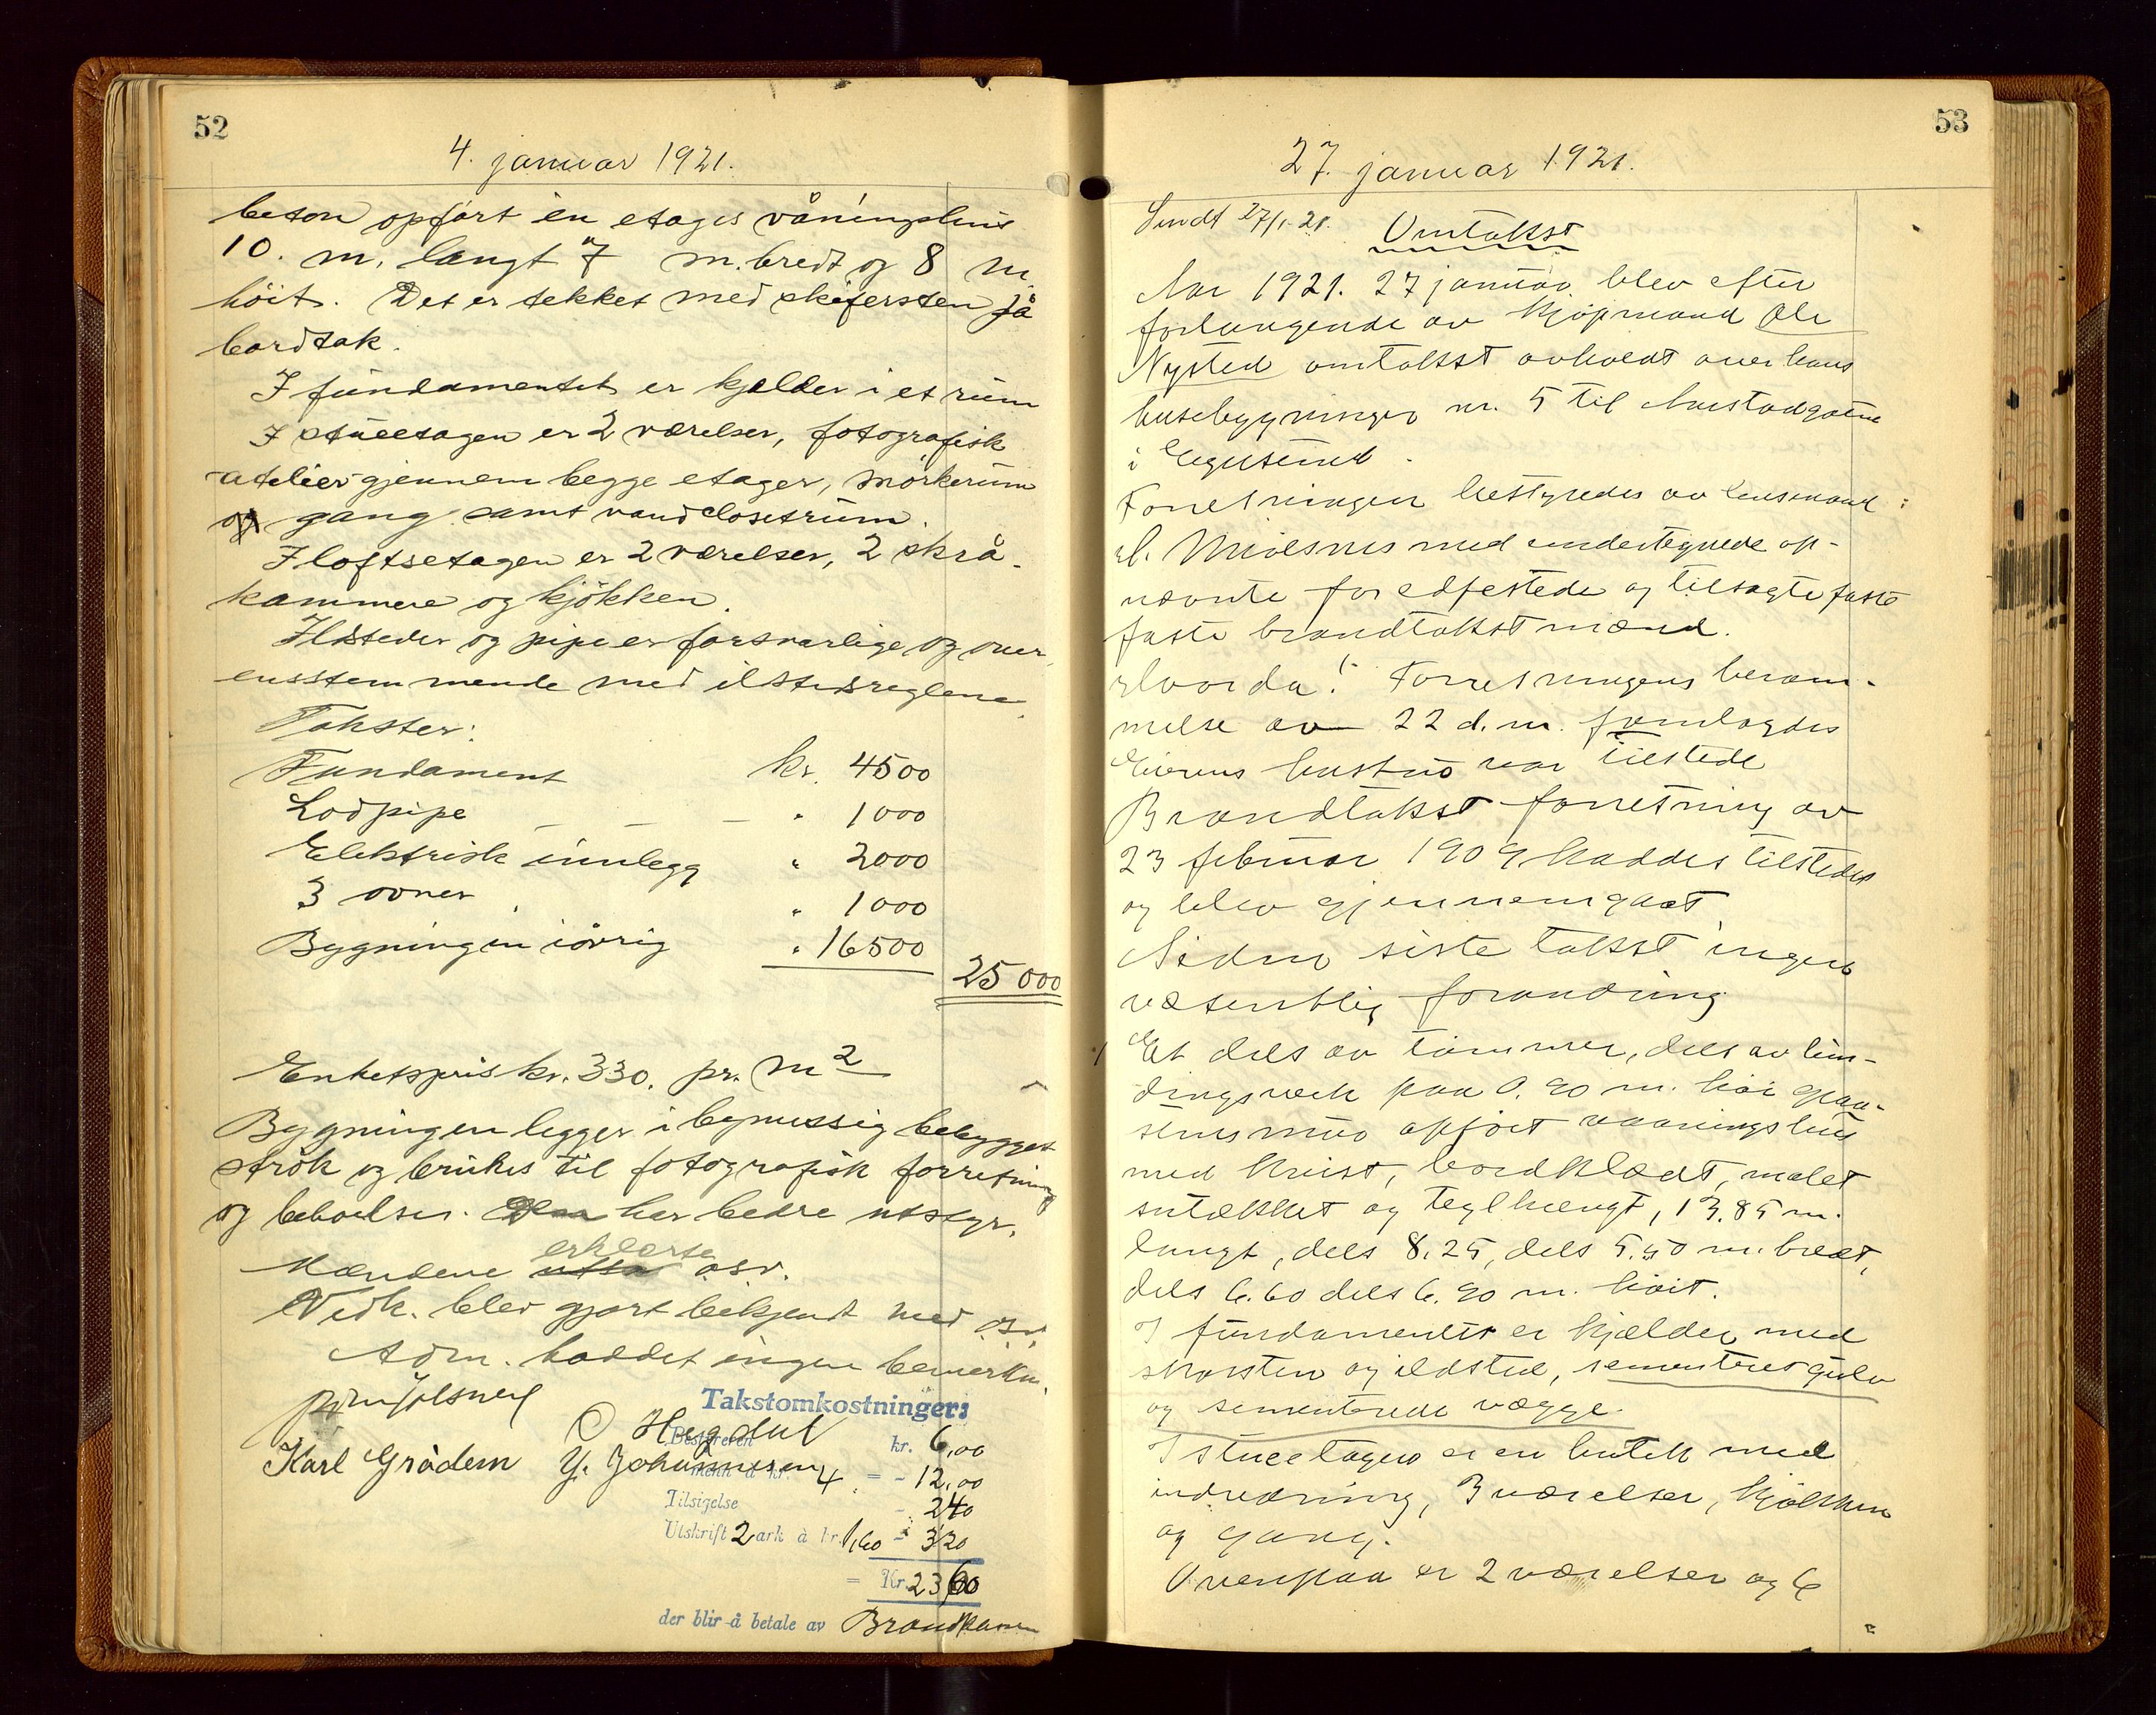 52
4. januar 1921.
beton opført en etages våningshus
10. m. langt 7 m. bredt og 8 m.
höit. Det er tekket med skifersten på
bordtak.
I fundamentet er kjelder i et rum
I stueetagen er 2 værelser, fotografisk
atelier gjennem begge etager, mörkerum
og gang samt vandclosetrum.
I loftsetagen er 2 værelser, 2 skrå-
kammere og kjökken.
Ildsteder og pipe er forsvarlige og over
ensstemmende med ilstedsreglene.
Takster:
Fundament kr. 4500
Lodpipe — — — " 1000
Elektrisk innlegg " 2000
3 ovner " 1000
Bygningen iövrig " 16500
25 000
Enhetspris kr. 330. pr. m2
Bygningen legger i bymessig bebygget
strök og brukes til fotografisk forretning
og beboelse. Den har bedre utstyr.
erklærte
Mændene osv.
Vedk. blev gjort bekjendt med osv.
Adm. haddet ingen bemerkn.
O Hegdal
Karl Grådem Y. Johannesen
Takstomkostninger:
Bestyreren kr. 6,00
menn à kr. 4 = - 12,00
Tilsigelse - 240
Utskrift 2 ark à kr. 1,60 - 320
= Kr. 2360
der blir å betale av Brandkassen
53
27. januar 1921.
Sendt 27/1-21.
Omtakst
Aar 1921. 27 januar blev efter
forlangende av kjöpmand Ole
Nysted omtakst avholdt over hans
husebygninger nr. 5 til Aarstadgaten
i Egersund.
Forretningen bestyredes av lensmand
M. Mjølsnes med undertegnede op-
nævnte foredfestede og tilsagte faste
faste brandtakstmænd.
Hvorda! Forretningens beram-
melse av 22 d.m. fremlagdes
Eierens hustru var tilstede
Brandtakst forretning av
23 februar 1909 haddes tilstede
og blev gjennemgaat.
Siden siste takst ingen
væsentlig forandring
Et dels av tömmer, dels av bin-
dingsverk paa 0.90 m. höi graa-
stens mur opfört vaaningshus
med kvist, bordklædt, malet
sutækket og teglhængt, 13.85 m.
langt, dels 8.25, dels 5.50 m. bredt,
dels 6.60 dels 6.90 m. höit.
I fundamentet er kjælder med
skorsten og ildsted, sementeret gulv
og sementerede vægge.
I stueetagen er en butik med
indredning, 3 værelser, kjökken
og gang.
Ovenpaa er 2 værelser og 6